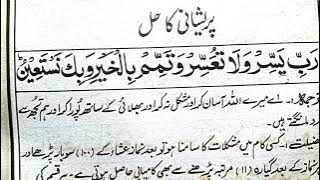 پریشانی کا حل
رَبِّ یَسِّرْ وَلَا تُعَسِّرْ وَتَمِّمْ بِالْخَیْرِ وَبِكَ نَسْتَعِیْنُ
ترجمہ:۔ اے میرے اللہ آسان کر اور مشکل نہ کر اور بھلائی کے ساتھ پورا کر اور ہم تجھ سے
مدد مانگتے ہیں۔
فضیلت:۔ ۱۔ کسی کام میں مشکلات کا سامنا ہو تو بعد نماز عشاء کے (۱۰۰) سو بار پڑھے اور
نماز کے بعد گیارہ (۱۱) مرتبہ پڑھنے سے بھی کامیابی حاصل ہوتی ہے۔ ہر قسم کی